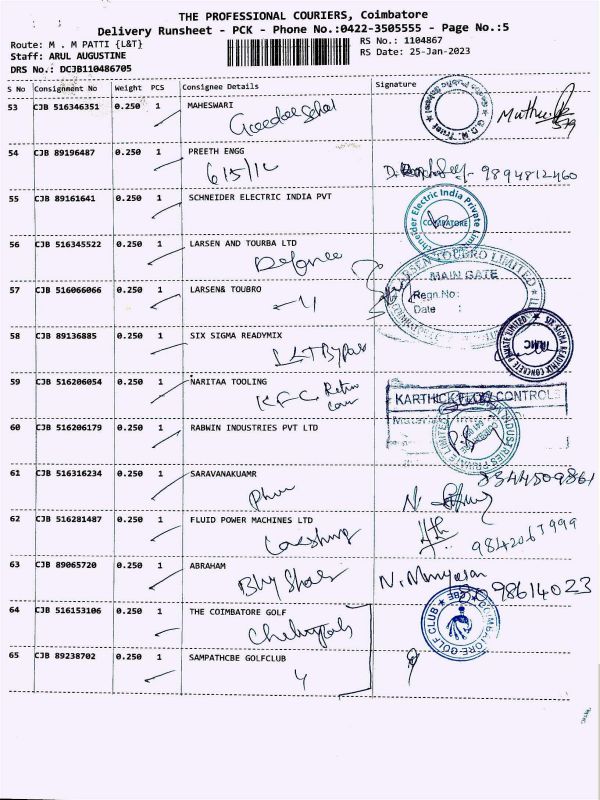 THE PROFESSIONAL COURIERS, Coimbatore
Delivery Runsheet - PCK - Phone No.:0422-3505555 - Page No.:5
Route: M . M PATTI {L&T}
Staff: ARUL AUGUSTINE
DRS No.: DCJB110486705
RS No.: 1104867
RS Date: 25-Jan-2023
S No Consignment No Weight PCS Consignee Details Signature
53 CJB 516346351 0.250 1 MAHESWARI
54 CJB 89196487 0.250 1 PREETH ENGG
9894812460
55 CJB 89161641 0.250 1 SCHNEIDER ELECTRIC INDIA PVT
Schneider Electric India Private Limited
COIMBATORE
56 CJB 516345522 0.250 1 LARSEN AND TOURBA LTD
Defence
LARSEN & TOUBRO LIMITED
MAIN GATE
57 CJB 516066066 0.250 1 LARSEN& TOUBRO
Regn.No:
Date :
58 CJB 89136885 0.250 1 SIX SIGMA READYMIX
L&T Bypass
SIX SIGMA READYMIX CONCRETE PRIVATE LIMITED
RMC
59 CJB 516206054 0.250 1 NARITAA TOOLING
KFC
KARTHICK FLOW CONTROLS
60 CJB 516206179 0.250 1 RABWIN INDUSTRIES PVT LTD
INDUSTRIES PRIVATE LIMITED
61 CJB 516316234 0.250 1 SARAVANAKUAMR
8344509861
62 CJB 516281487 0.250 1 FLUID POWER MACHINES LTD
63 CJB 89065720 0.250 1 ABRAHAM
98614023
64 CJB 516153106 0.250 1 THE COIMBATORE GOLF
COIMBATORE GOLF CLUB
CBE
65 CJB 89238702 0.250 1 SAMPATHCBE GOLFCLUB